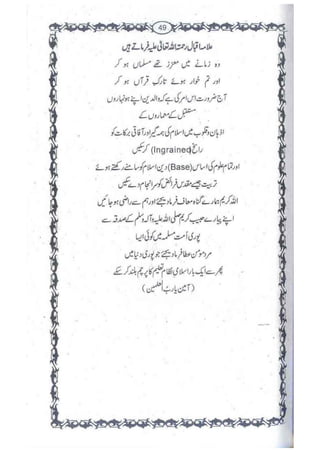 49
علامہ اقبال رحمتہ اللہ تعالیٰ علیہ فرماتے ہیں
وہ زمانے میں معزز تھے مسلماں ہو کر
اور تم خوار ہوئے تارکِ قرآں ہو کر
آج ضرورت اس امر کی ہے کہ والدین اپنے ہونہاروں
مستقبل کے معماروں کے
اذہان و قلوب میں اسلام کی ہمہ گیر اور آفاقی برکات کو
راسخ (Ingrained) کر سکیں
اور تمام علوم کی اساس (Base) دین اسلام کو سامنے رکھتے ہوئے
تربیت جیسے مقدس فرائض کو سرانجام دے سکیں
اللہ کریم ہمارے گناہ معاف فرما دیجئے اور ہم سے راضی ہو جائیں
اپنے پیارے حبیب کریم صلی اللہ علیہ وآلہ وسلم کے صدقہ سے
پوری اُمت مسلمہ میں کوئی ایسا
مرد مومن عطا فرما دیجئے جو پوری دنیا میں
پھر سے ایک بار اسلامی نظام تعلیم کا پرچم بلند کر سکے
(آمین یا رب العلمین)